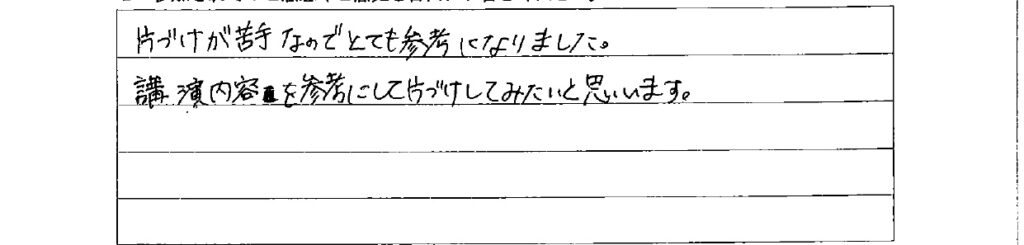 片づけが苦手なのでとても参考になりました。
講演内容を参考にして片づけしてみたいと思います。